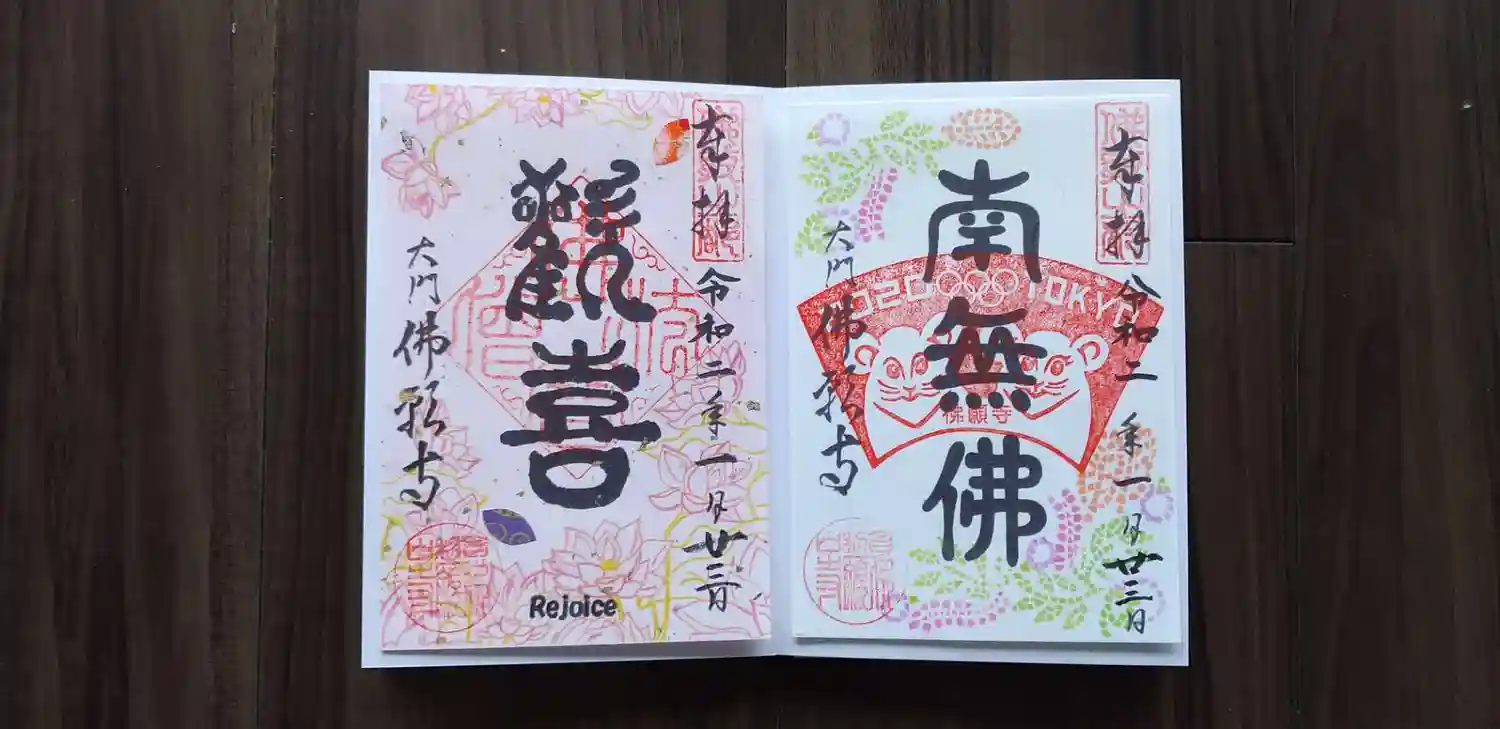 奉拝
令和二年一月廿三日
歡喜
大門
佛願寺
Rejoice
奉拝
令和二年一月廿三日
南無佛
2020 TOKYO
佛願寺
大門
佛願寺